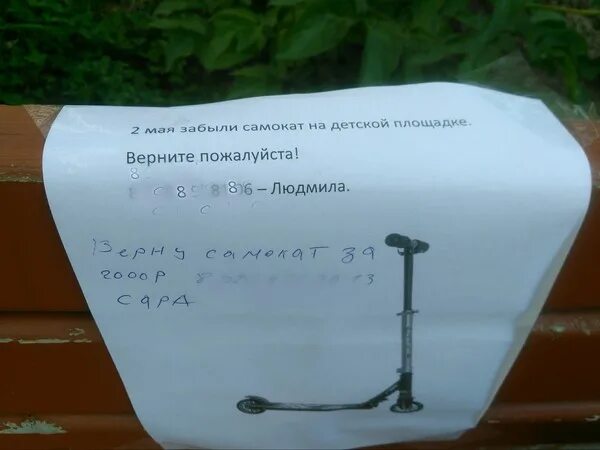 2 мая забыли самокат на детской площадке.
Верните пожалуйста!
– Людмила.
Верну самокат за
2000р
сард